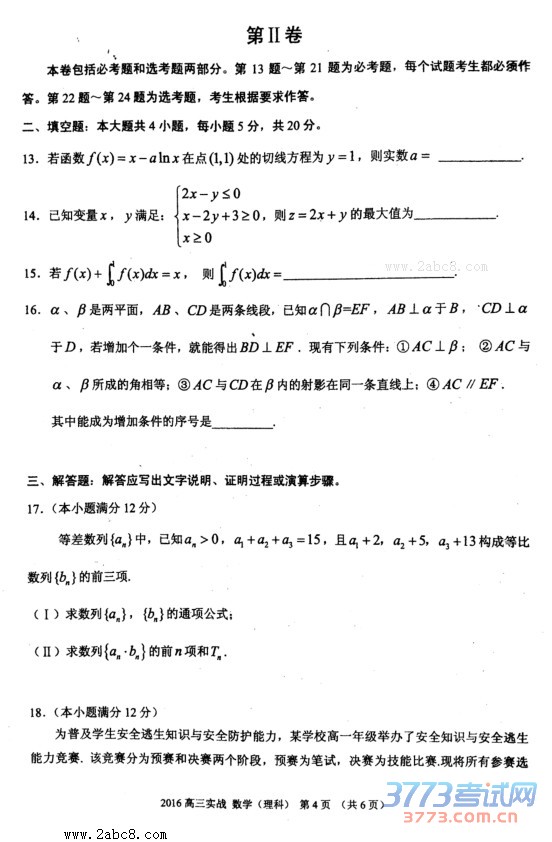 第Ⅱ卷
本卷包括必考题和选考题两部分。第 13 题～第 21 题为必考题，每个试题考生都必须作
答。第 22 题～第 24 题为选考题，考生根据要求作答。
二、填空题：本大题共 4 小题，每小题 5 分，共 20 分。
13．若函数 f(x) = x − a ln x 在点 (1,1) 处的切线方程为 y = 1，则实数 a = ________.
14．已知变量 x，y 满足：{2x − y ≤ 0
x − 2y + 3 ≥ 0，则 z = 2x + y 的最大值为________.
x ≥ 0
www.2abc8.com
15．若 f(x) + ∫₀¹ f(x)dx = x，则 ∫₀¹ f(x)dx = ________.
16．α、β 是两平面，AB、CD 是两条线段，已知 α∩β=EF，AB⊥α 于 B，CD⊥α
于 D，若增加个一条件，就能得出 BD⊥EF．现有下列条件：①AC⊥β；②AC 与
α、β 所成的角相等；③AC 与 CD 在 β 内的射影在同一条直线上；④AC∥EF．
其中能成为增加条件的序号是________.
三、解答题：解答应写出文字说明、证明过程或演算步骤。
17．（本小题满分 12 分）
等差数列{aₙ}中，已知 aₙ > 0，a₁ + a₂ + a₃ = 15，且 a₁ + 2，a₂ + 5，a₃ + 13 构成等比
数列{bₙ}的前三项.
（Ⅰ）求数列{aₙ}，{bₙ}的通项公式；
（Ⅱ）求数列{aₙ·bₙ}的前 n 项和 Tₙ．
18．（本小题满分 12 分）
为普及学生安全逃生知识与安全防护能力，某学校高一年级举办了安全知识与安全逃生
能力竞赛．该竞赛分为预赛和决赛两个阶段，预赛为笔试，决赛为技能比赛.现将所有参赛选
2016 高三实战 数学（理科） 第 4 页 （共 6 页）
www.2abc8.com
3773考试网
www.3773.com.cn